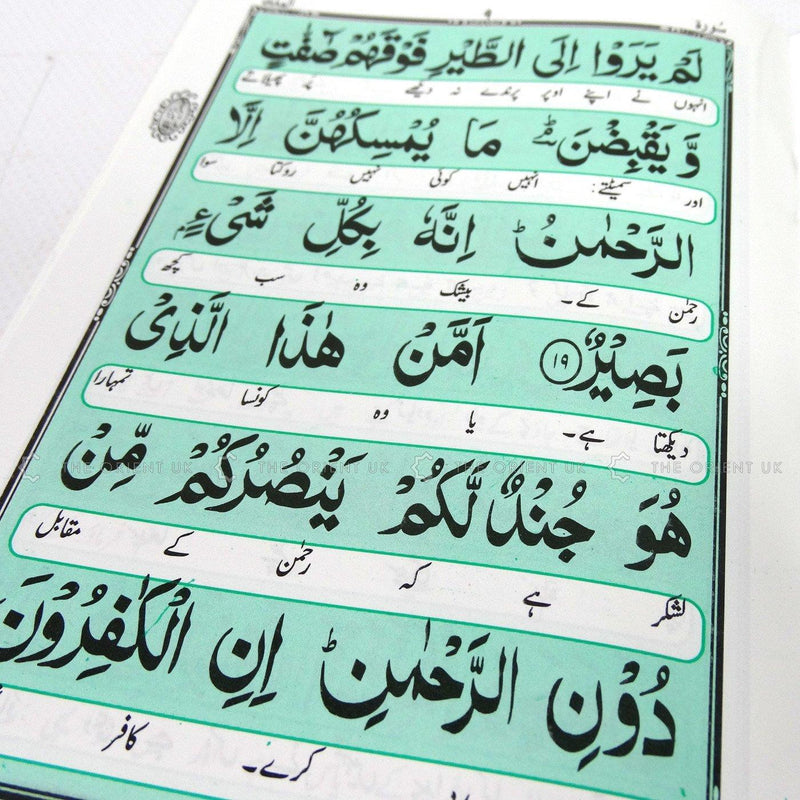 سورة
٩
لَمْ يَرَوْا اِلَى الطَّيْرِ فَوْقَهُمْ صٰٓفّٰتٍ
انہوں نے اپنے اوپر پرندے نہ دیکھے پر پھیلاتے
وَّيَقْبِضْنَ ؕۘ مَا يُمْسِكُهُنَّ اِلَّا
اور سمیٹتے: انہیں کوئی نہیں روکتا سوا
الرَّحْمٰنُ ؕ اِنَّهٗ بِكُلِّ شَیْءٍۭ
رحمٰن کے۔ بیشک وہ سب کچھ
بَصِيْرٌ ١٩ اَمَّنْ هٰذَا الَّذِیْ
دیکھتا ہے۔ یا وہ کونسا تمہارا
هُوَ جُنْدٌ لَّكُمْ يَنْصُرُكُمْ مِّنْ
لشکر ہے کہ رحمٰن کے مقابل
دُوْنِ الرَّحْمٰنِ ؕ اِنِ الْكٰفِرُوْنَ
کرے۔ کافر
THE ORIENT UK THE ORIENT UK THE ORIENT UK THE ORIENT UK